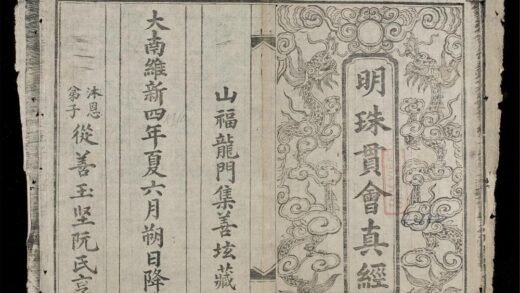 明珠貫會真經
山福龍門集善坛藏
大南維新四年夏六月朔日降
沐恩
弟子
從善玉坚阮氏